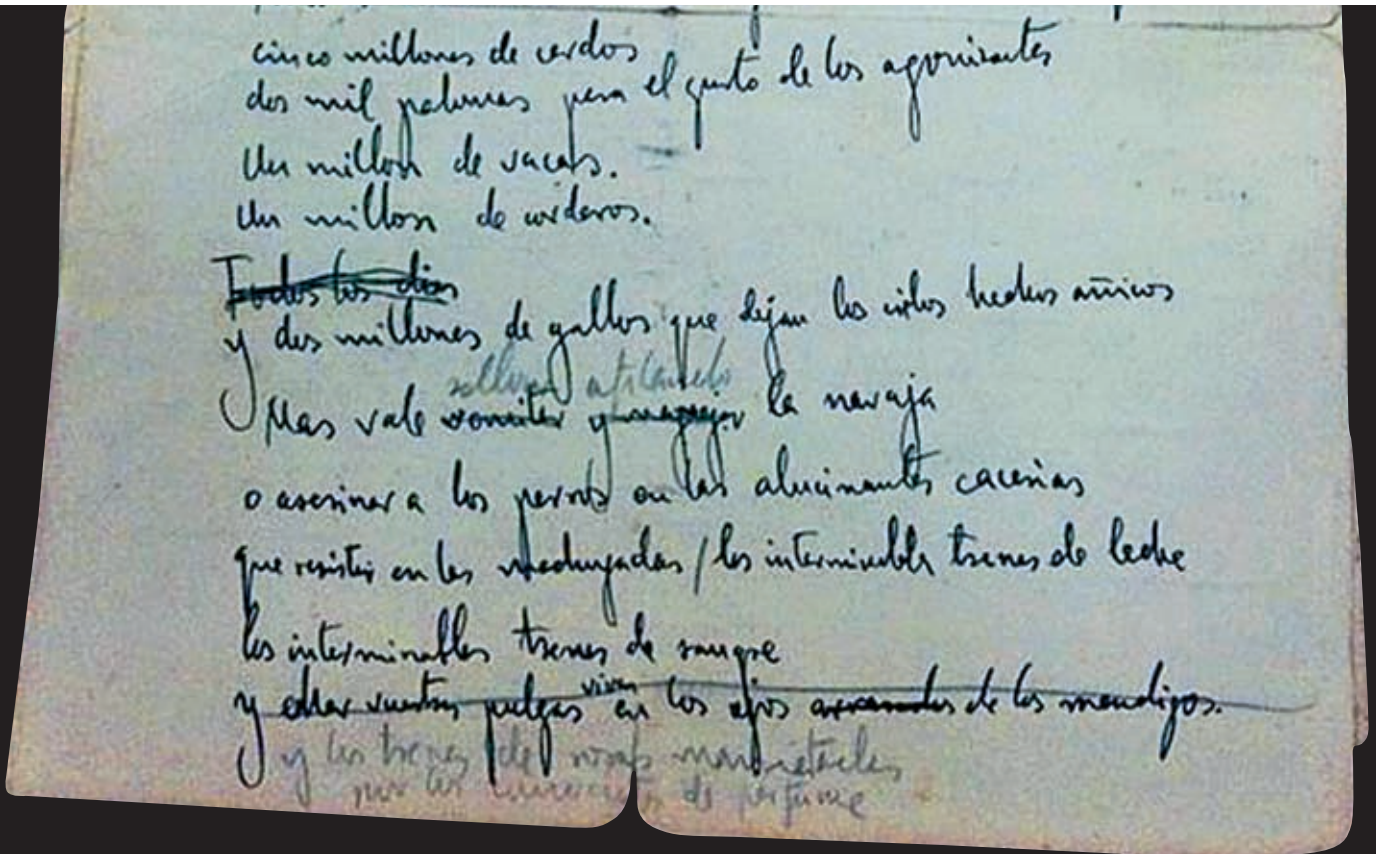 cinco millones de cerdos
dos mil palomas para el gusto de los agonizantes
Un millon de vacas.
Un millon de corderos.
Todos los dias
y dos millones de gallos que dejan los cielos hechos añicos
sollozar afilando
Mas vale vomitar y manejar la navaja
o asesinar a los perros en las alucinantes cacerias
que resistir en las madrugadas / los interminables trenes de leche
los interminables trenes de sangre
vivas
y echar vuestras pulgas en los ojos de los mendigos.
y los trenes de rosas maniatadas
por los comerciantes de perfume